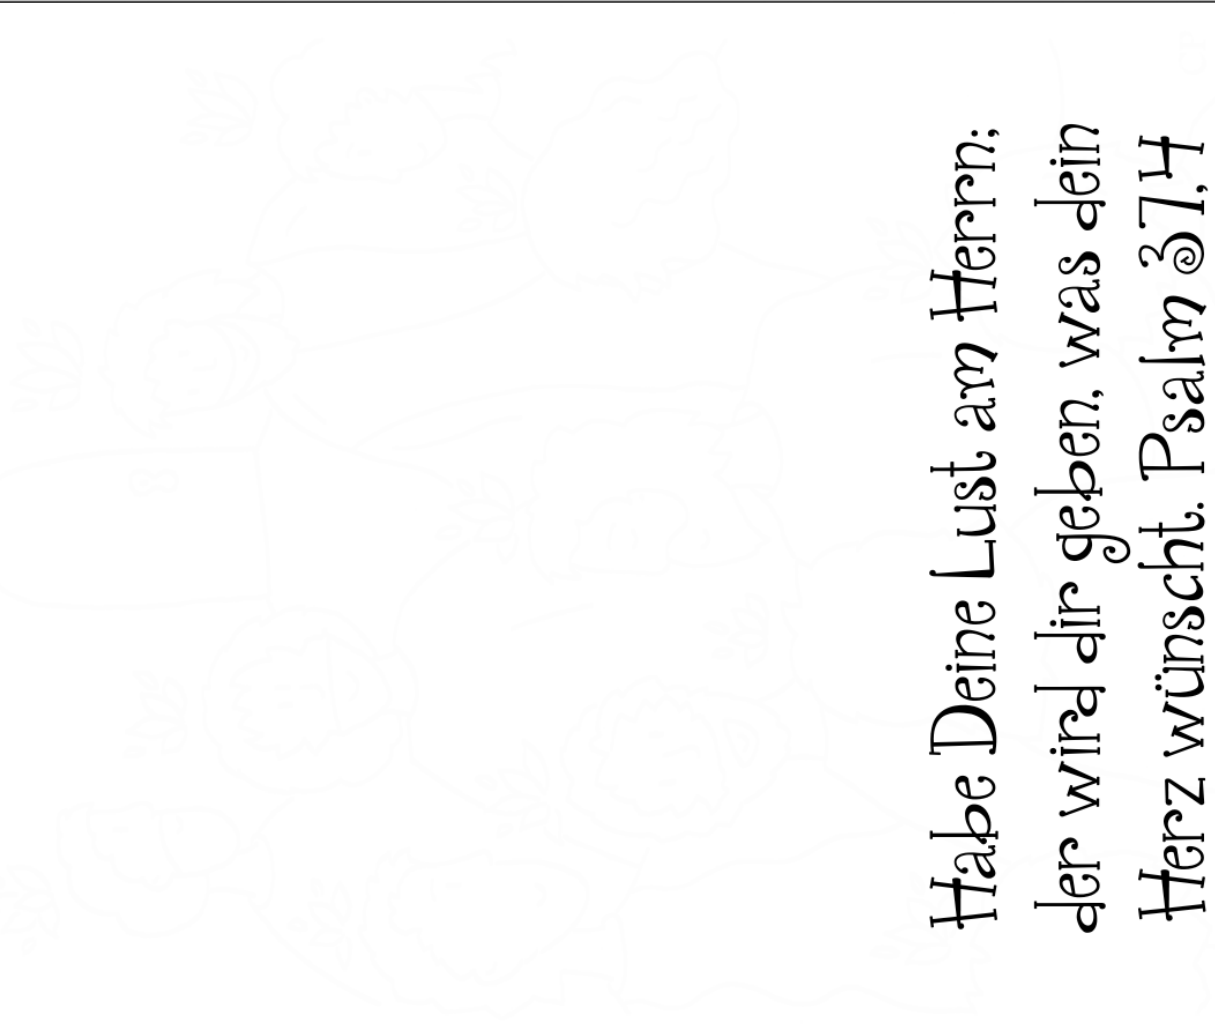 Habe Deine Lust am Herrn;
der wird dir geben, was dein
Herz wünscht. Psalm 37,4